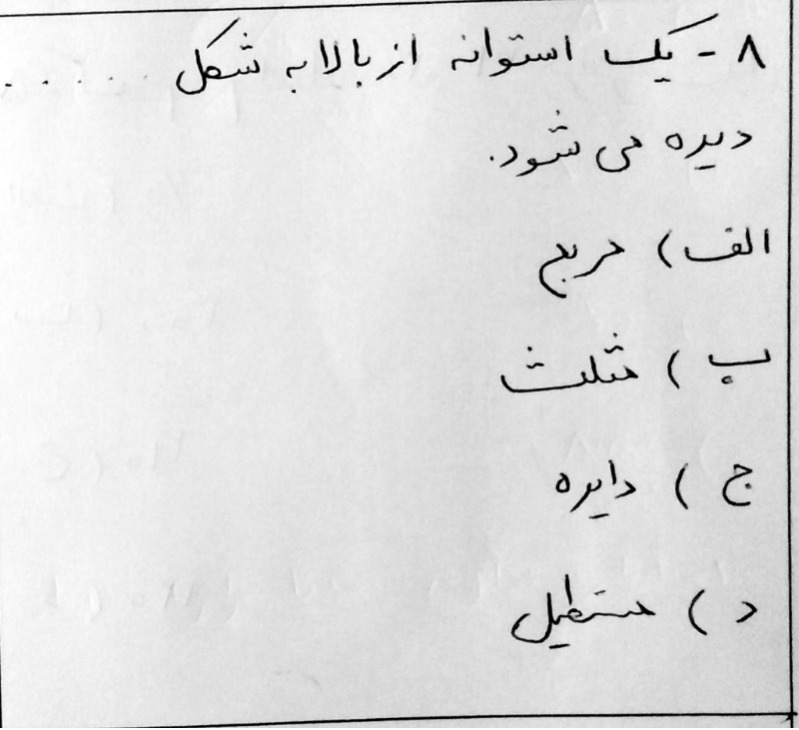 ۸ - یک استوانه از بالا به شکل .....
دیده می شود.
الف) مربع
ب) مثلث
ج) دایره
د) مستطیل